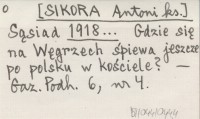 o [SIKORA Antoni ks.]
Sąsiad 1918... Gdzie się
na Węgrzech śpiewa jeszcze
po polsku w kościele? —
Gaz. Podh. 6, nr 4.